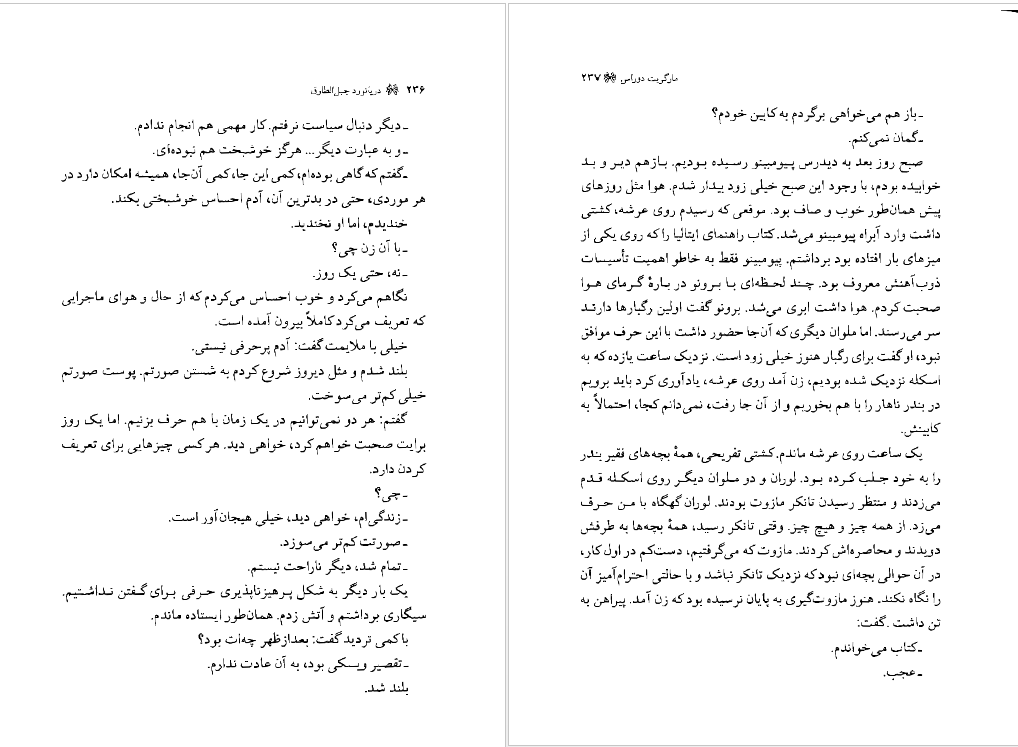 ۲۳۶ دریانورد جبل‌الطارق
ـ دیگر دنبال سیاست نرفتم. کار مهمی هم انجام ندادم.
ـ و به عبارت دیگر... هرگز خوشبخت هم نبوده‌ای.
ـ گفتم که گاهی بوده‌ام، کمی این جا، کمی آن‌جا، همیشه امکان دارد در
هر موردی، حتی در بدترین آن، آدم احساس خوشبختی بکند.
خندیدم، اما او نخندید.
ـ با آن زن چی؟
ـ نه، حتی یک روز.
نگاهم می‌کرد و خوب احساس می‌کردم که از حال و هوای ماجرایی
که تعریف می‌کرد کاملاً بیرون آمده است.
خیلی با ملایمت گفت: آدم پرحرفی نیستی.
بلند شدم و مثل دیروز شروع کردم به شستن صورتم. پوست صورتم
خیلی کم‌تر می‌سوخت.
گفتم: هر دو نمی‌توانیم در یک زمان با هم حرف بزنیم. اما یک روز
برایت صحبت خواهم کرد، خواهی دید. هر کسی چیزهایی برای تعریف
کردن دارد.
ـ چی؟
ـ زندگی‌ام، خواهی دید، خیلی هیجان‌آور است.
ـ صورتت کم‌تر می‌سوزد.
ـ تمام شد، دیگر ناراحت نیستم.
یک بار دیگر به شکل پرهیزناپذیری حرفی برای گفتن نداشتیم.
سیگاری برداشتم و آتش زدم. همان‌طور ایستاده ماندم.
با کمی تردید گفت: بعدازظهر چه‌ات بود؟
ـ تقصیر ویسکی بود، به آن عادت ندارم.
بلند شد.
مارگریت دوراس ۲۳۷
ـ باز هم می‌خواهی برگردم به کابین خودم؟
ـ گمان نمی‌کنم.
صبح روز بعد به دیدرس پیومبینو رسیده بودیم. بازهم دیر و بد
خوابیده بودم، با وجود این صبح خیلی زود بیدار شدم. هوا مثل روزهای
پیش همان‌طور خوب و صاف بود. موقعی که رسیدم روی عرشه، کشتی
داشت وارد آبراه پیومبینو می‌شد. کتاب راهنمای ایتالیا را که روی یکی از
میزهای بار افتاده بود برداشتم. پیومبینو فقط به خاطو اهمیت تأسیسات
ذوب‌آهنش معروف بود. چند لحظه‌ای با برونو در بارهٔ گرمای هوا
صحبت کردم. هوا داشت ابری می‌شد. برونو گفت اولین رگبارها دارند
سر می‌رسند. اما ملوان دیگری که آن‌جا حضور داشت با این حرف موافق
نبود، او گفت برای رگبار هنوز خیلی زود است. نزدیک ساعت یازده که به
اسکله نزدیک شده بودیم، زن آمد روی عرشه، یادآوری کرد باید برویم
در بندر ناهار را با هم بخوریم و از آن جا رفت، نمی‌دانم کجا، احتمالاً به
کابینش.
یک ساعت روی عرشه ماندم. کشتی تفریحی، همهٔ بچه‌های فقیر بندر
را به خود جلب کرده بود. لوران و دو ملوان دیگر روی اسکله قدم
می‌زدند و منتظر رسیدن تانکر مازوت بودند. لوران گهگاه با من حرف
می‌زد. از همه چیز و هیچ چیز. وقتی تانکر رسید، همهٔ بچه‌ها به طرفش
دویدند و محاصره‌اش کردند. مازوت که می‌گرفتیم، دست‌کم در اول کار،
در آن حوالی بچه‌ای نبود که نزدیک تانکر نباشد و با حالتی احترام‌آمیز آن
را نگاه نکند. هنوز مازوت‌گیری به پایان نرسیده بود که زن آمد. پیراهن به
تن داشت .گفت:
ـ کتاب می‌خواندم.
ـ عجب.